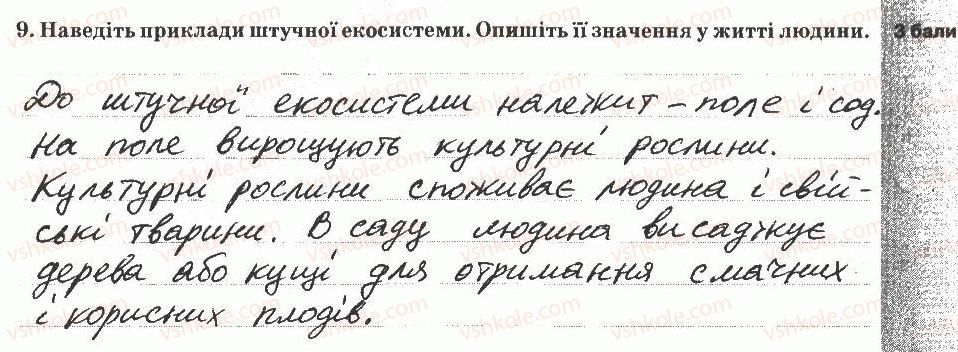 9. Наведіть приклади штучної екосистеми. Опишіть її значення у житті людини. 3 бали
До штучної екосистеми належит – поле і сад.
На поле вирощують культурні рослини.
Культурні рослини споживає людина і свій-
ські тварини. В саду людина висаджує
дерева або кущі для отримання смачних
і корисних плодів.